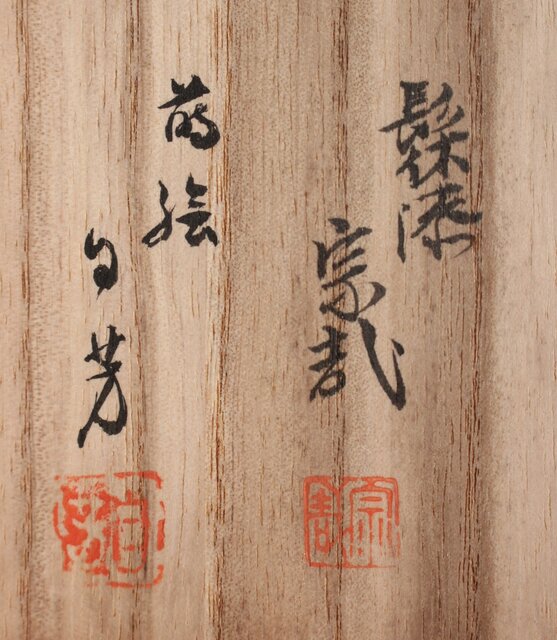 髹漆
宗哉
蒔絵
白芳